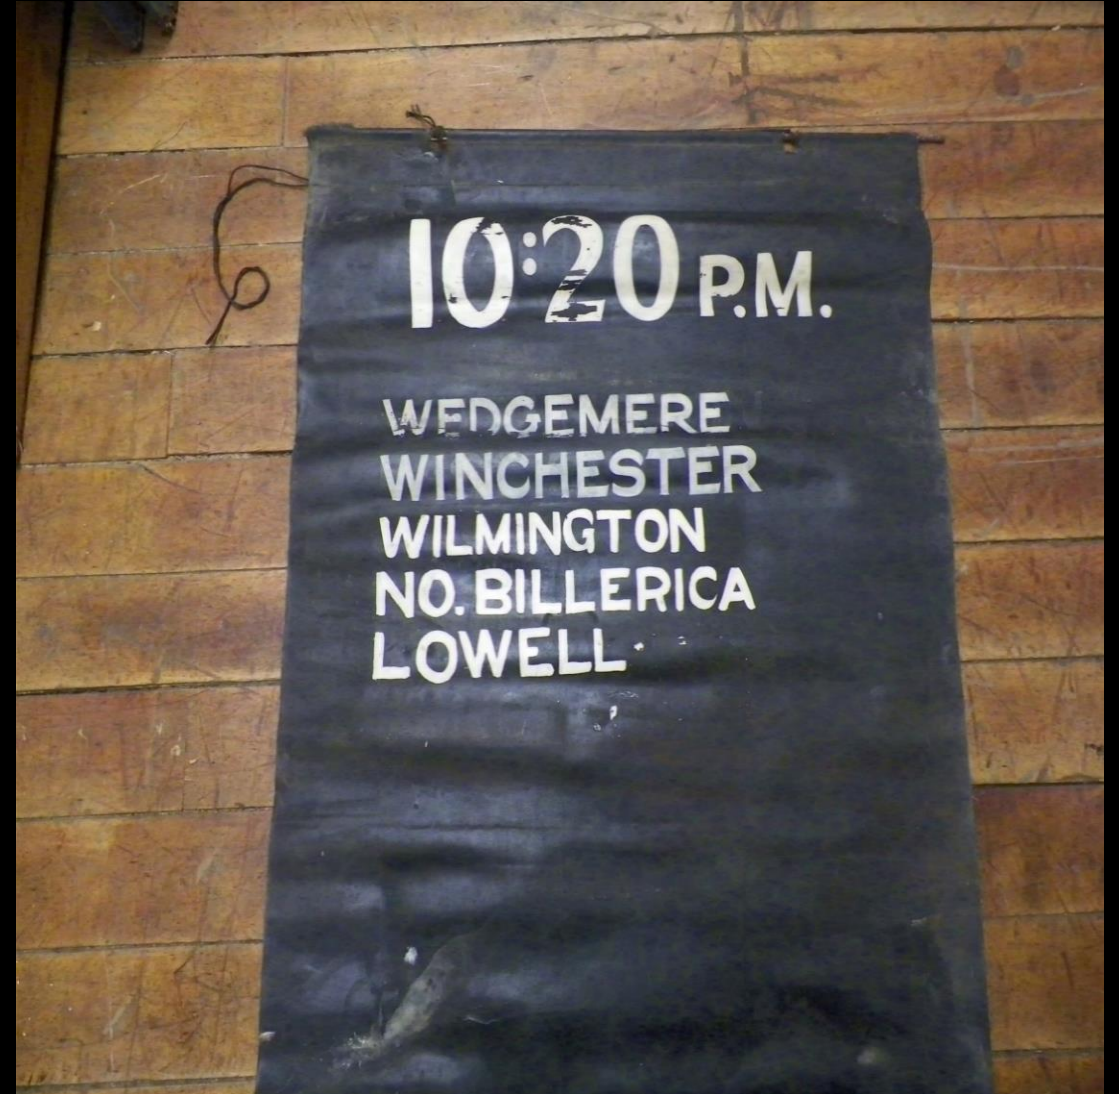 10:20 P.M.
WEDGEMERE
WINCHESTER
WILMINGTON
NO. BILLERICA
LOWELL